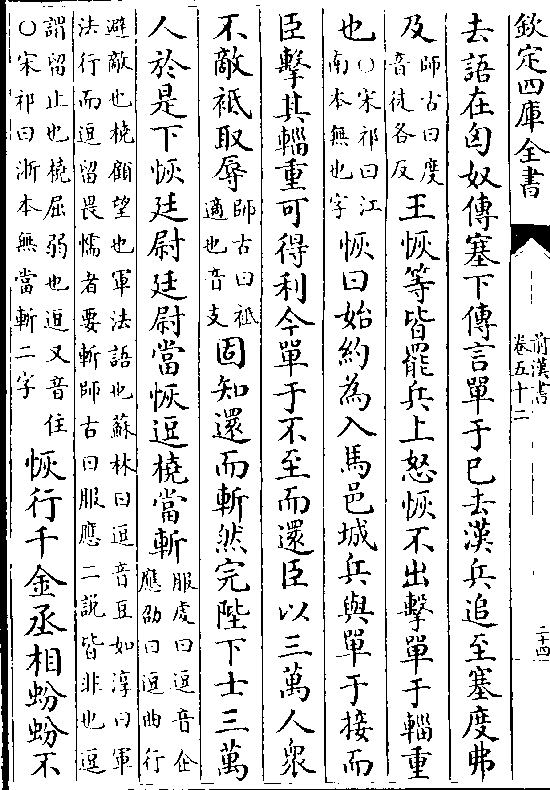 欽定四庫全書
前漢書
卷五十二
二十四
去語在匈奴傳塞下傳言單于已去漢兵追至塞度弗
及師古曰度音徒各反王恢等皆罷兵上怒恢不出擊單于輜重
也○宋祁曰江南本無也字恢曰始約為入馬邑城兵與單于接而
臣擊其輜重可得利今單于不至而還臣以三萬人衆
不敵袛取辱師古曰袛適也音支固知還而斬然完陛下士三萬
人於是下恢廷尉廷尉當恢逗橈當斬服虔曰逗音企應劭曰逗曲行
避敵也橈顧望也軍法語也蘇林曰逗音豆如淳曰軍
法行而逗留畏懦者要斬師古曰服應二説皆非也逗
謂留止也橈屈弱也逗又音住○宋祁曰浙本無當斬二字恢行千金丞相蚡蚡不